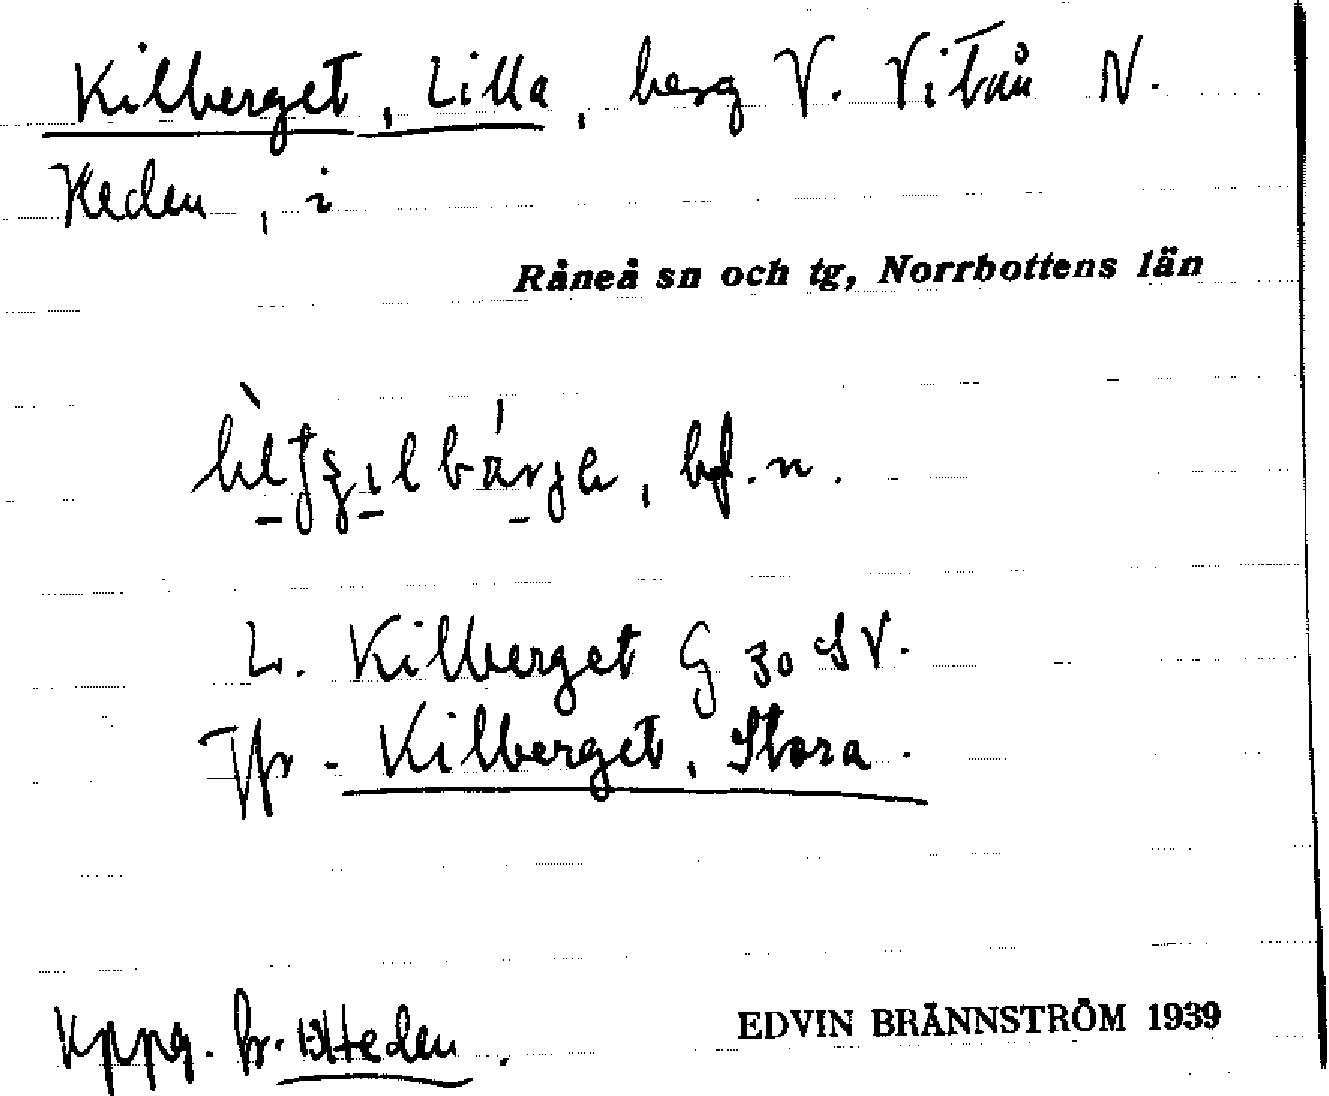 Kilberget, Lilla, berg V. Vitån N.
Heden, i
Råneå sn och tg, Norrbottens län
bf. n.
L. Kilberget G 30 SV.
Jfr - Kilberget, Stora.
Uppg. fr. Heden.
EDVIN BRÄNNSTRÖM 1939